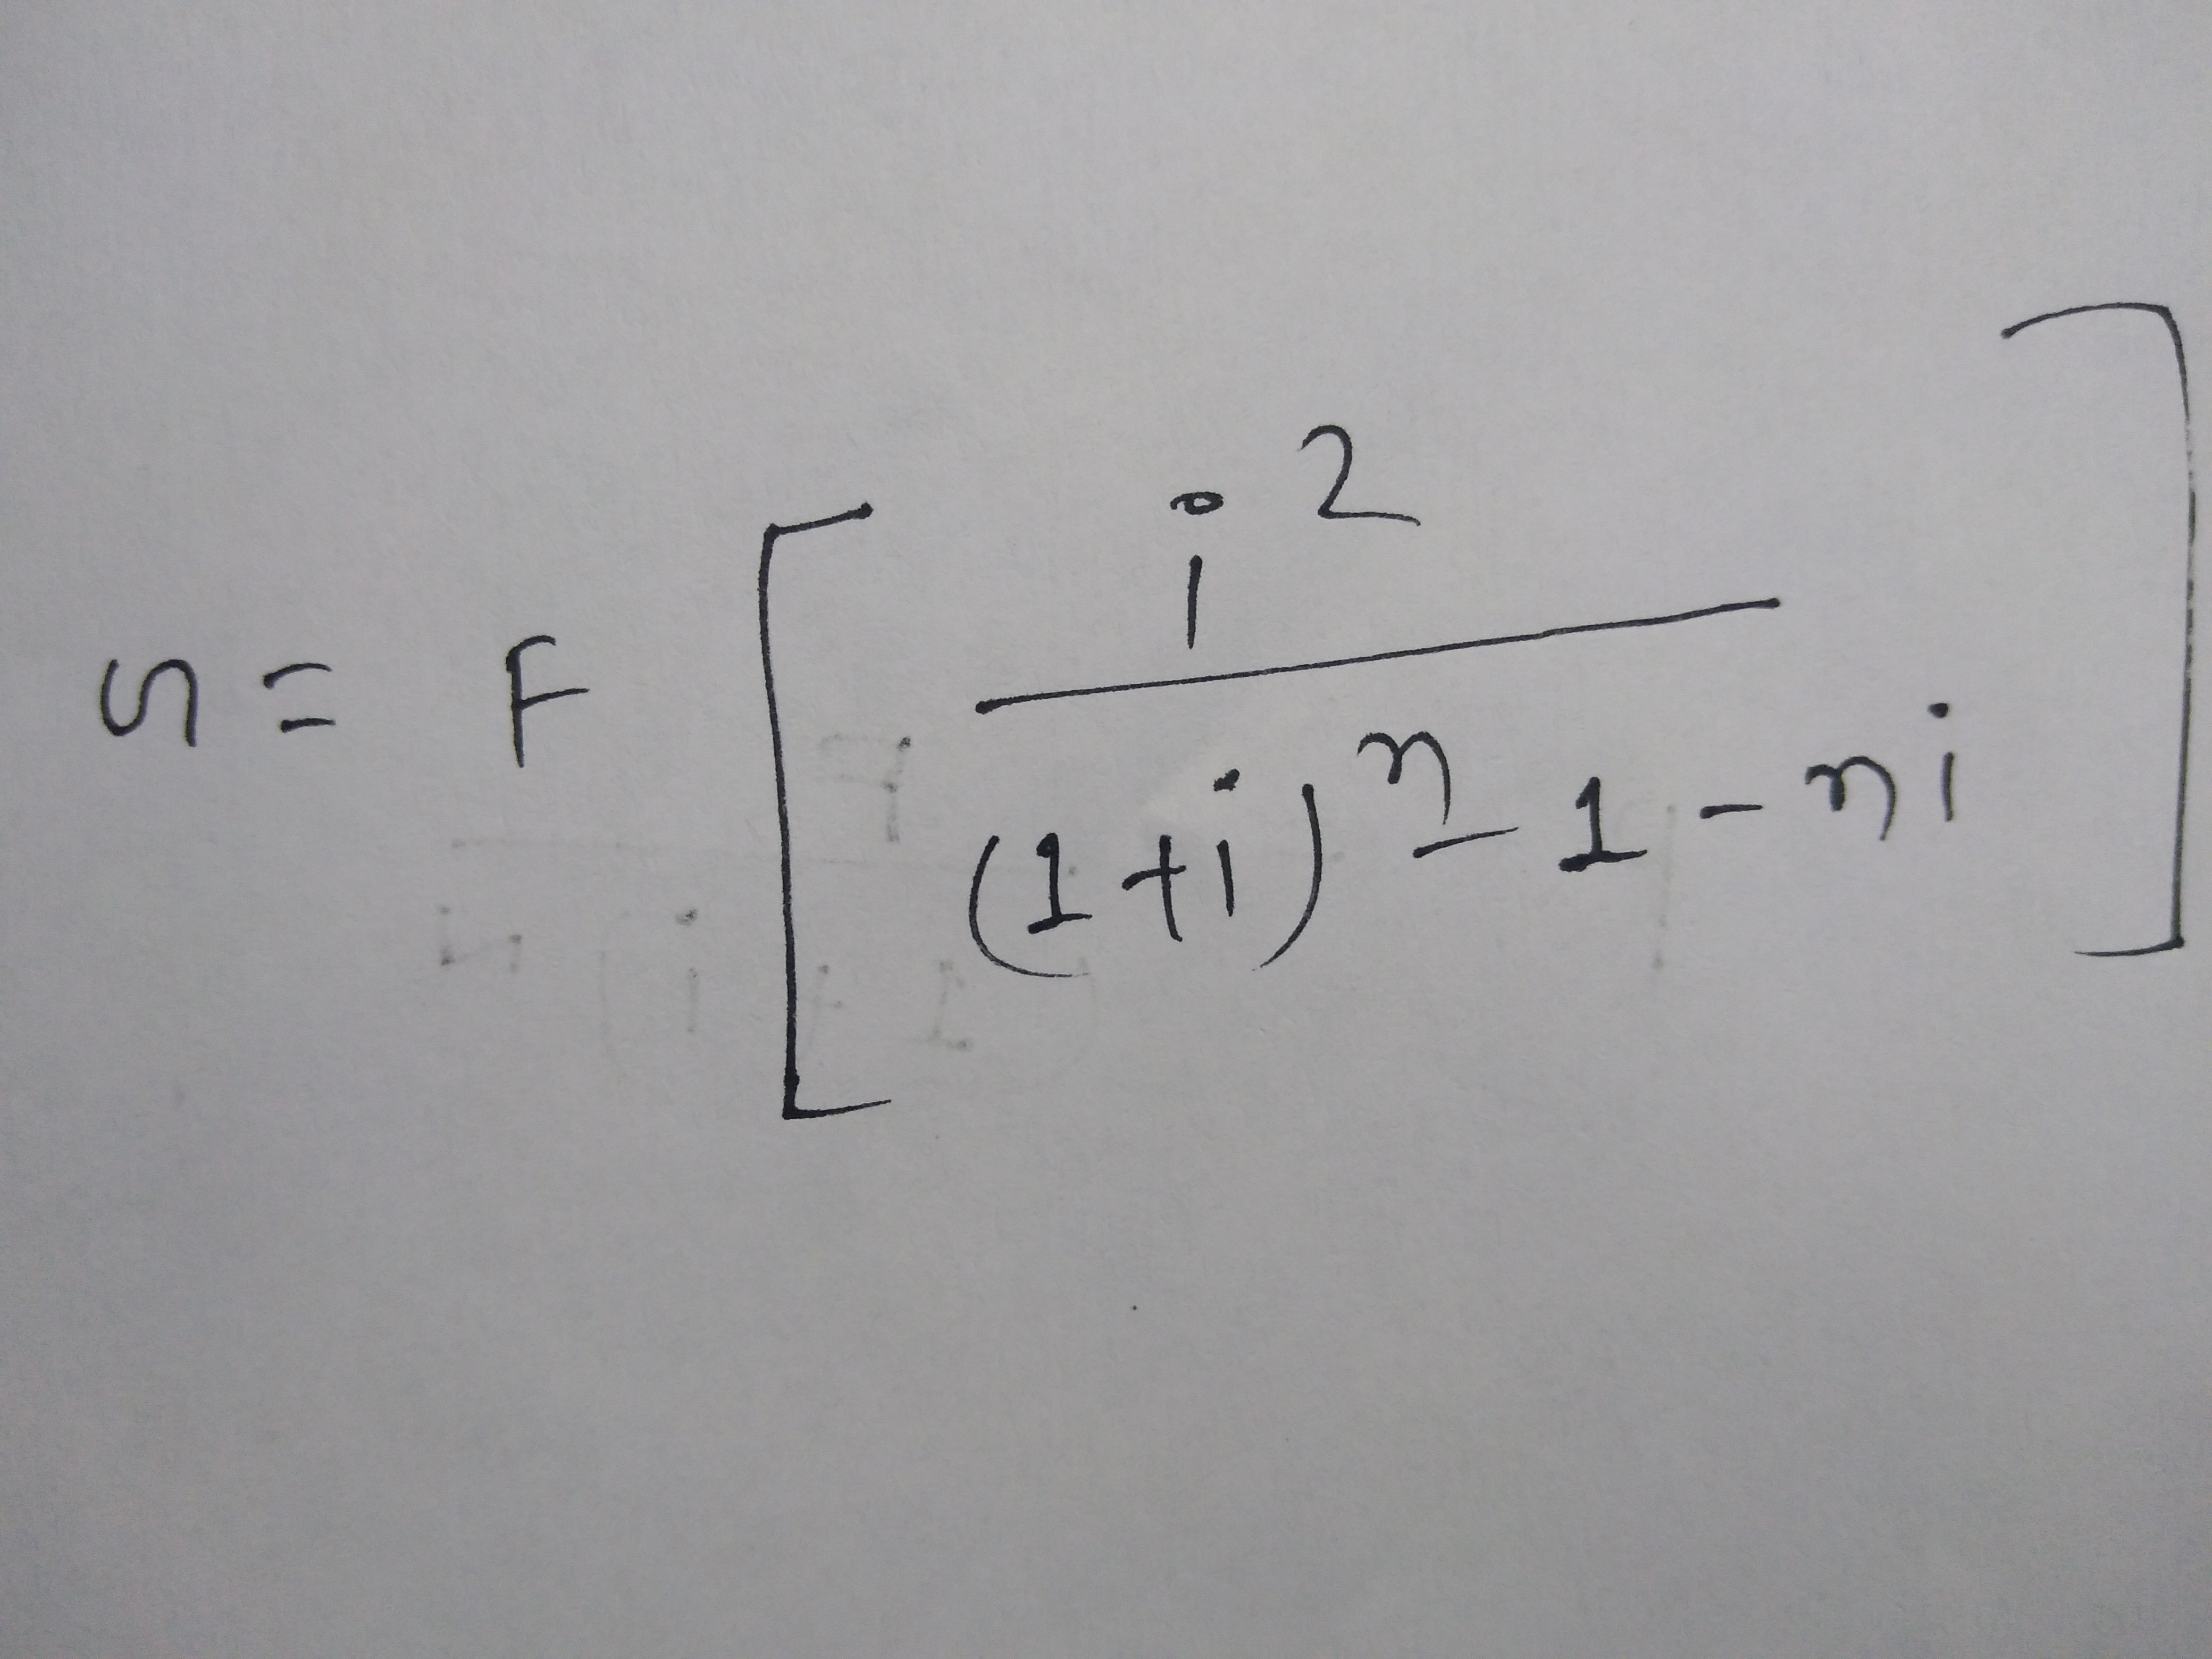 G = F [ i² / ((1+i)ⁿ - 1 - ni) ]